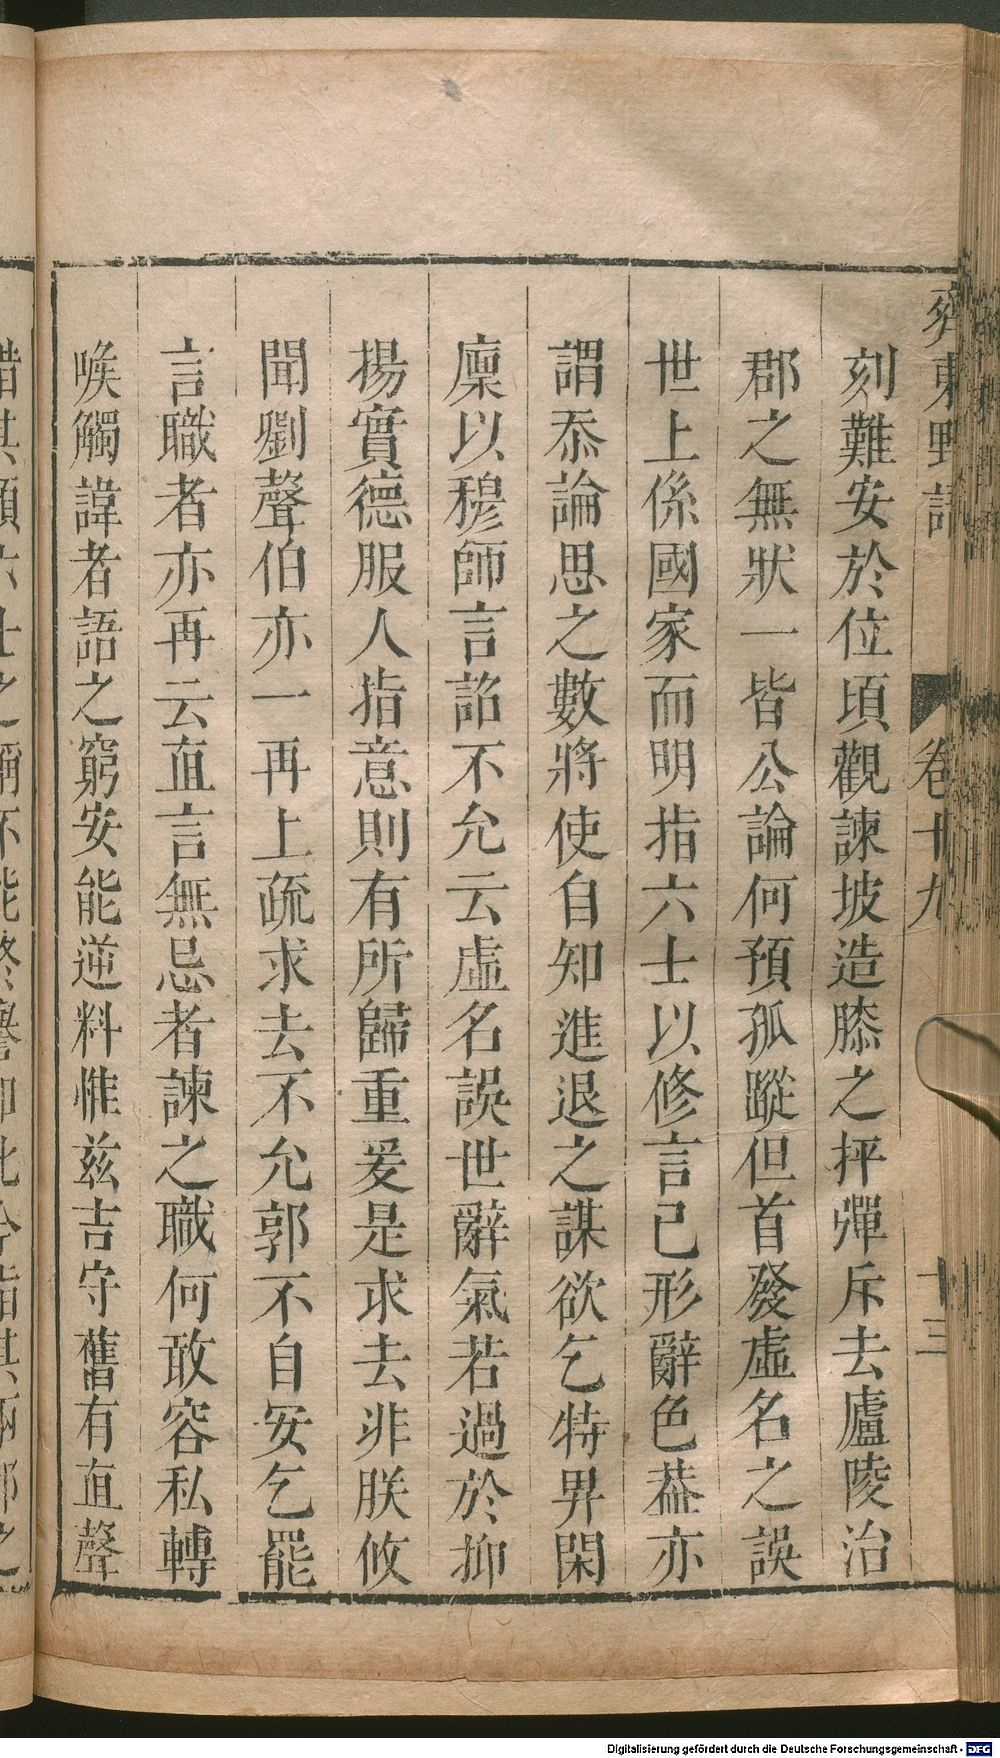 齊東野語 卷十九 十三
刻難安於位頃觀諫坡造膝之抨彈斥去廬陵治
郡之無狀一皆公論何預孤蹤但首發虛名之誤
世上係國家而明指六士以修言已形辭色葢亦
謂忝論思之數將使自知進退之謀欲乞特畀閑
廩以穆師言詔不允云虛名誤世辭氣若過於抑
揚實德服人指意則有所歸重爰是求去非朕攸
聞劉聲伯亦一再上疏求去不允郭不自安乞罷
言職者亦再云直言無忌者諫之職何敢容私轉
喉觸諱者語之窮安能逆料惟茲吉守舊有直聲
其 六士之 不能終譽 此今指其兩郡之
Digitalisierung gefördert durch die Deutsche Forschungsgemeinschaft - DFG